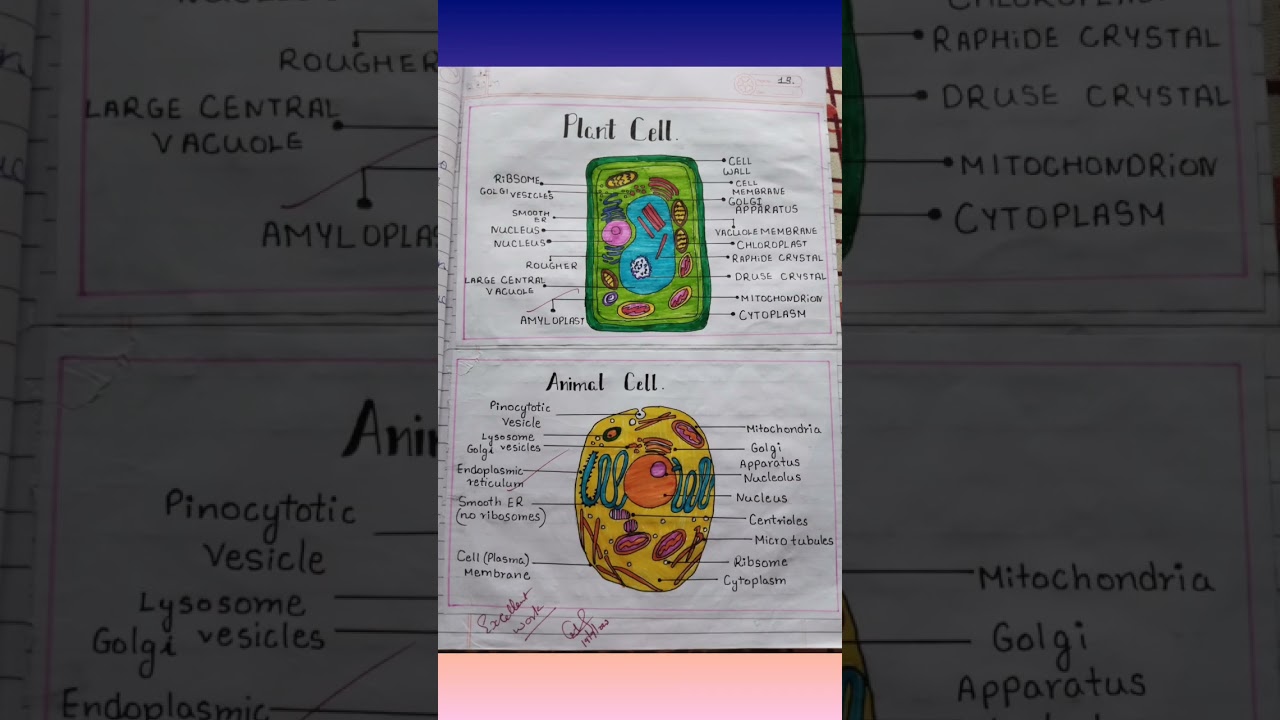 13.
Plant Cell.
RiBSOME
GOLGI VESICLES
SMOOTH
ER
NUCLEUS
NUCLEUS
ROUGHER
LARGE CENTRAL
VACUOLE
AMYLOPLAST
CELL
WALL
CELL
MEMBRANE
GOLGI
APPARATUS
VACUOLE MEMBRANE
CHLOROPLAST
RAPHIDE CRYSTAL
DRUSE CRYSTAL
MITOCHONDRION
CYTOPLASM
Animal Cell.
Pinocytotic
Vesicle
Lysosome
Golgi vesicles
Endoplasmic
reticulum
Smooth ER
(no ribosomes)
Cell (Plasma)
Membrane
Mitochondria
Golgi
Apparatus
Nucleolus
Nucleus
Centrioles
Micro tubules
Ribsome
Cytoplasm
Excellent
work
ROUGHER
LARGE CENTRAL
VACUOLE
AMYLOPLAS
RAPHIDE CRYSTAL
DRUSE CRYSTAL
MITOCHONDRION
CYTOPLASM
Ani
Pinocytotic
Vesicle
Lysosome
Golgi vesicles
Endoplasmic
Mitochondria
Golgi
Apparatus